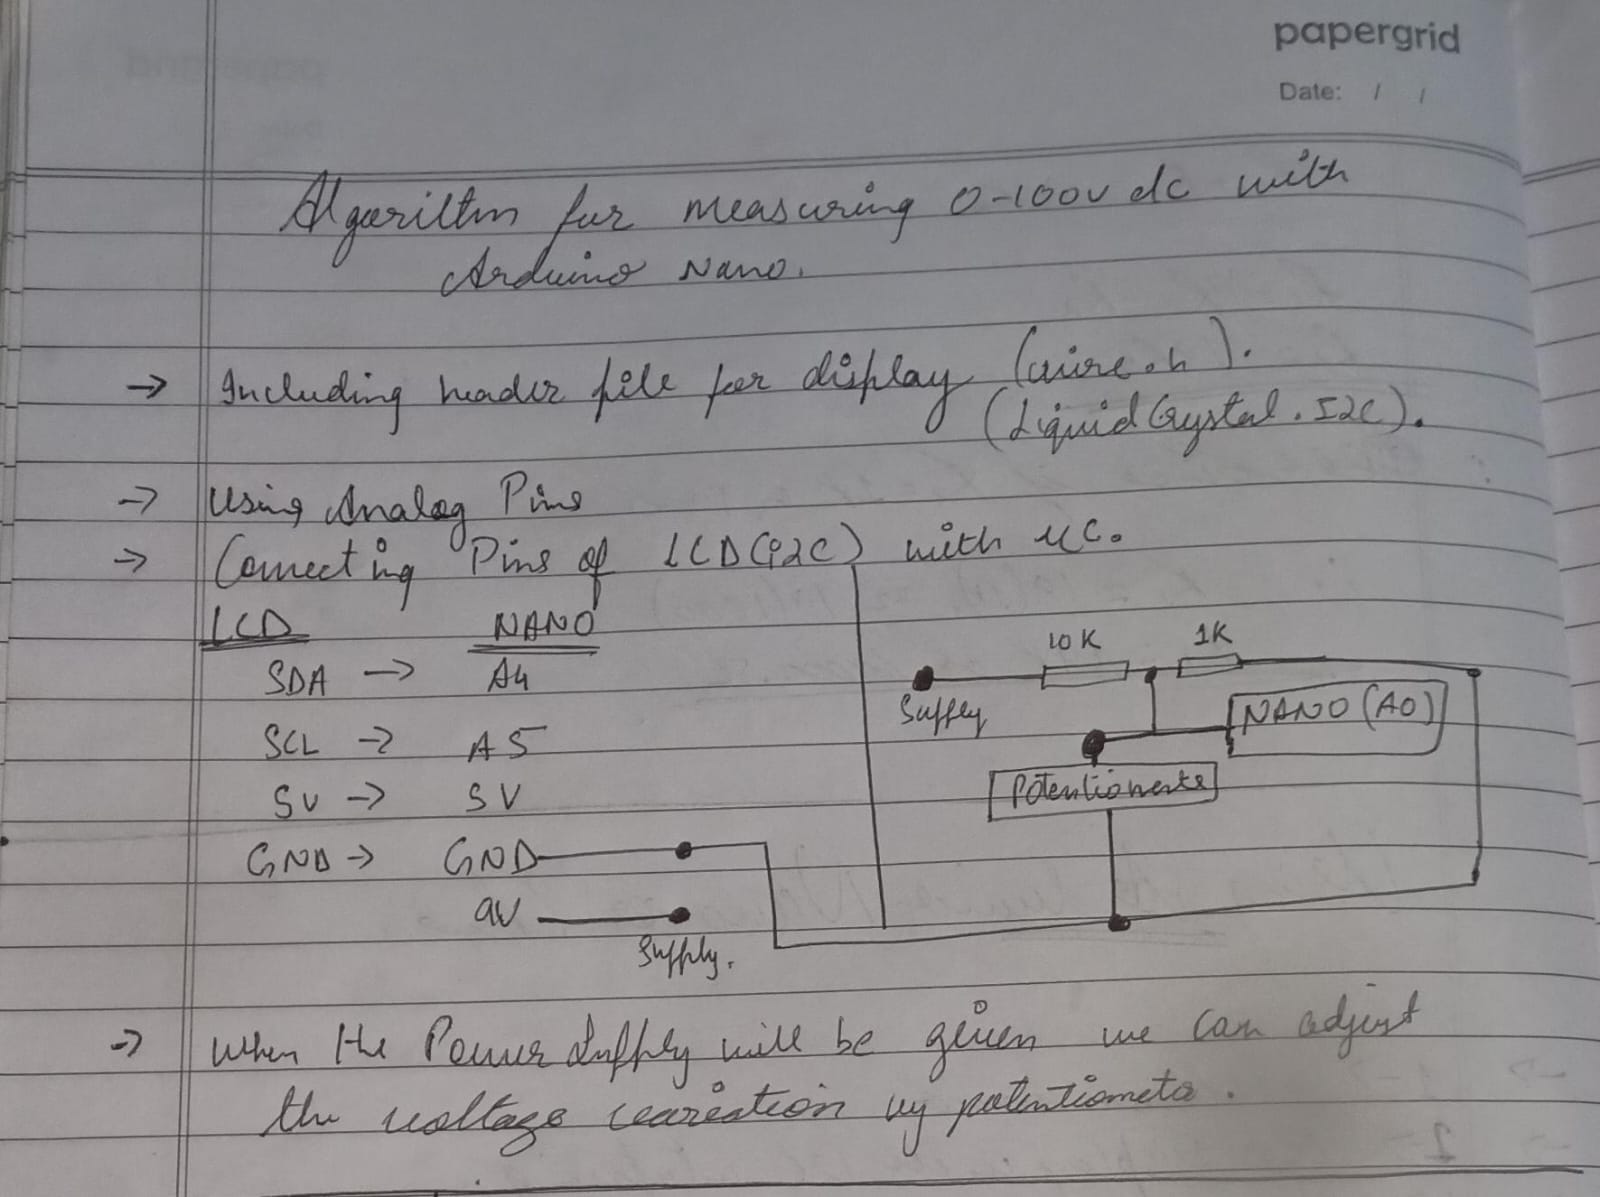 papergrid
Date: / /
Algorithm for measuring 0-100v dc with
Arduino Nano.
→ Including header file for display (wire.h).
(Liquid Crystal.I2C).
→ Using Analog Pins
→ Connecting Pins of LCD(i2C) with uC.
LCD NANO
SDA → A4
SCL → A5
5V → 5V
GND → GND
9V
Supply.
10K 1K
Supply
NANO (A0)
Potentiometer
→ when the Power Supply will be given we can adjust
the voltage variation by potentiometer.